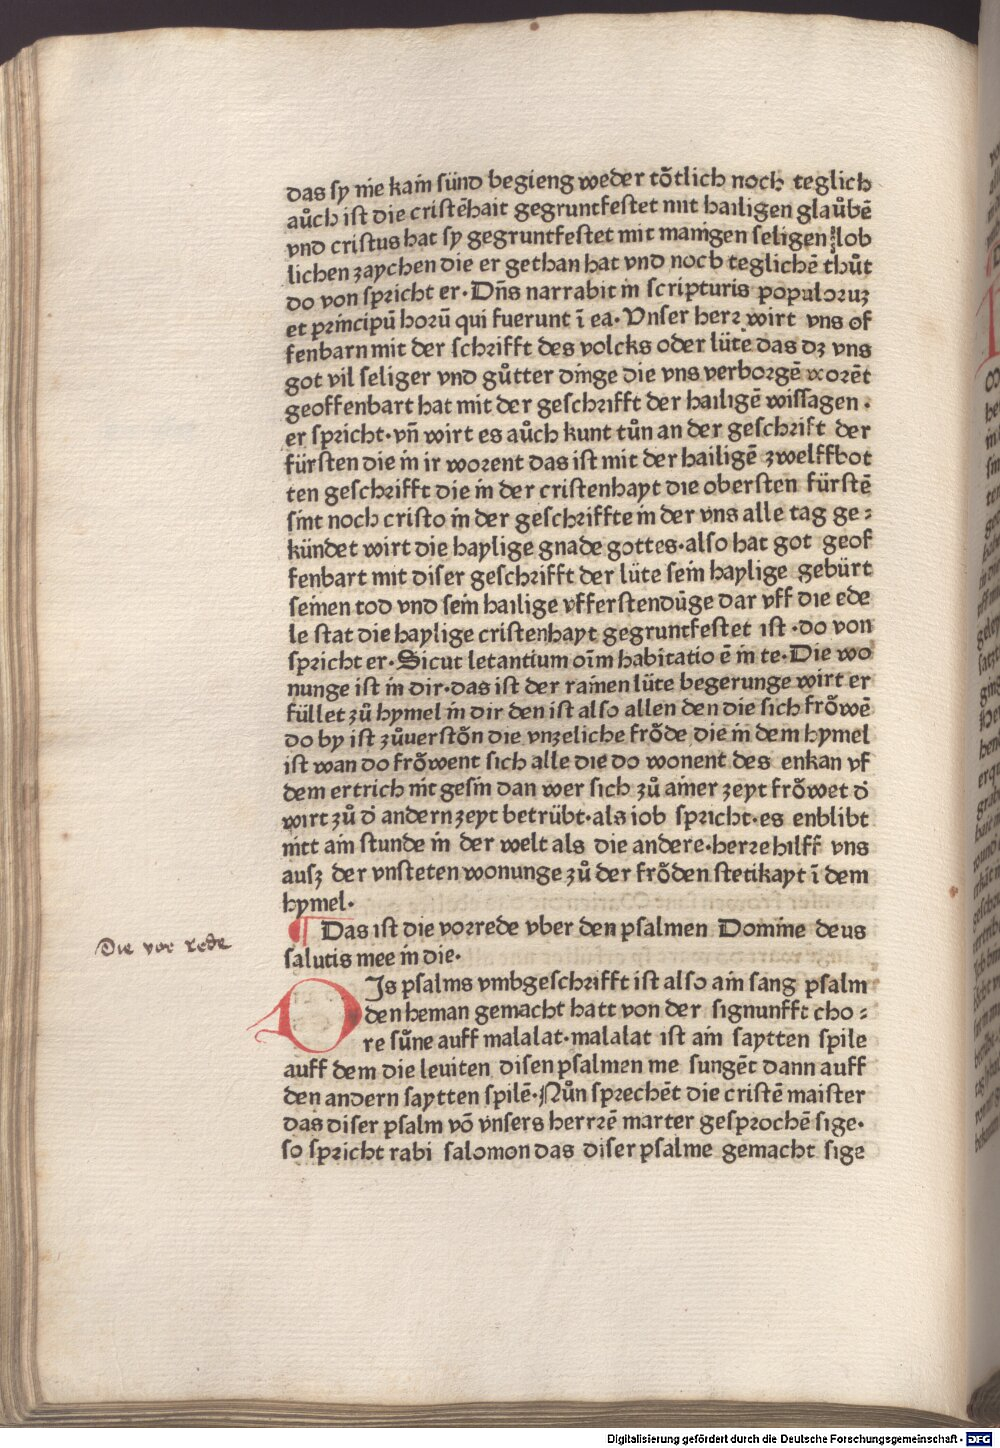 das sy nie kain sünd begieng weder tötlich noch teglich
aůch ist die cristēhait gegruntfestet mit hailigen glaůbē
vnd cristus hat sy gegruntfestet mit manigen seligen lob
lichen zaychen die er gethan hat vnd noch teglichē thůt
do von spricht er· Dñs narrabit in scripturis populoruz
et principū horū qui fuerunt ī ea· Vnser herr wirt vns of
fenbarn mit der schrifft des volcks oder lüte das dz vns
got vil seliger vnd gůtter dinge die vns verborgē worēt
geoffenbart hat mit der geschrifft der hailigē wissagen ·
er spricht· vñ wirt es aůch kunt tůn an der geschrift der
fürsten die in ir worent das ist mit der hailigē zwelffbot
ten geschrifft die in der cristenhayt die obersten fürstē
sint noch cristo in der geschriffte in der vns alle tag ge⸗
kündet wirt die haylige gnade gottes· also hat got geof
fenbart mit diser geschrifft der lüte sein haylige gebürt
seinen tod vnd sein hailige vfferstendūge dar vff die ede
le stat die haylige cristenhayt gegruntfestet ist · do von
spricht er· Sicut letantium oīm habitatio ē in te· Die wo
nunge ist in dir· das ist der rainen lüte begerunge wirt er
füllet zů hymel in dir den ist also allen den die sich frŏwē
do by ist zůverstŏn die vnzeliche frŏde die in dem hymel
ist wan do frŏwent sich alle die do wonent des enkan vf
dem ertrich nit gesin dan wer sich zů ainer zeyt frŏwet d̄
wirt zů d̄ andern zeyt betrübt· als iob spricht· es enblibt
nitt ain stunde in der welt als die andere· herre hilff vns
ausz der vnsteten wonunge zů der frŏden stetikayt ī dem
hymel·
¶ Das ist die vorrede vber den psalmen Domine deus
salutis mee in die·
Die vor rede
DIs psalms vmbgeschrifft ist also ain sang psalm
den heman gemacht hatt von der signunfft cho⸗
re sůne auff malalat· malalat ist ain saytten spile
auff dem die leuiten disen psalmen me sungēt dann auff
den andern saytten spilē· Nůn sprechēt die cristē maister
das diser psalm vō vnsers herrē marter gesprochē sige·
so spricht rabi salomon das diser psalme gemacht sige
Digitalisierung gefördert durch die Deutsche Forschungsgemeinschaft - DFG